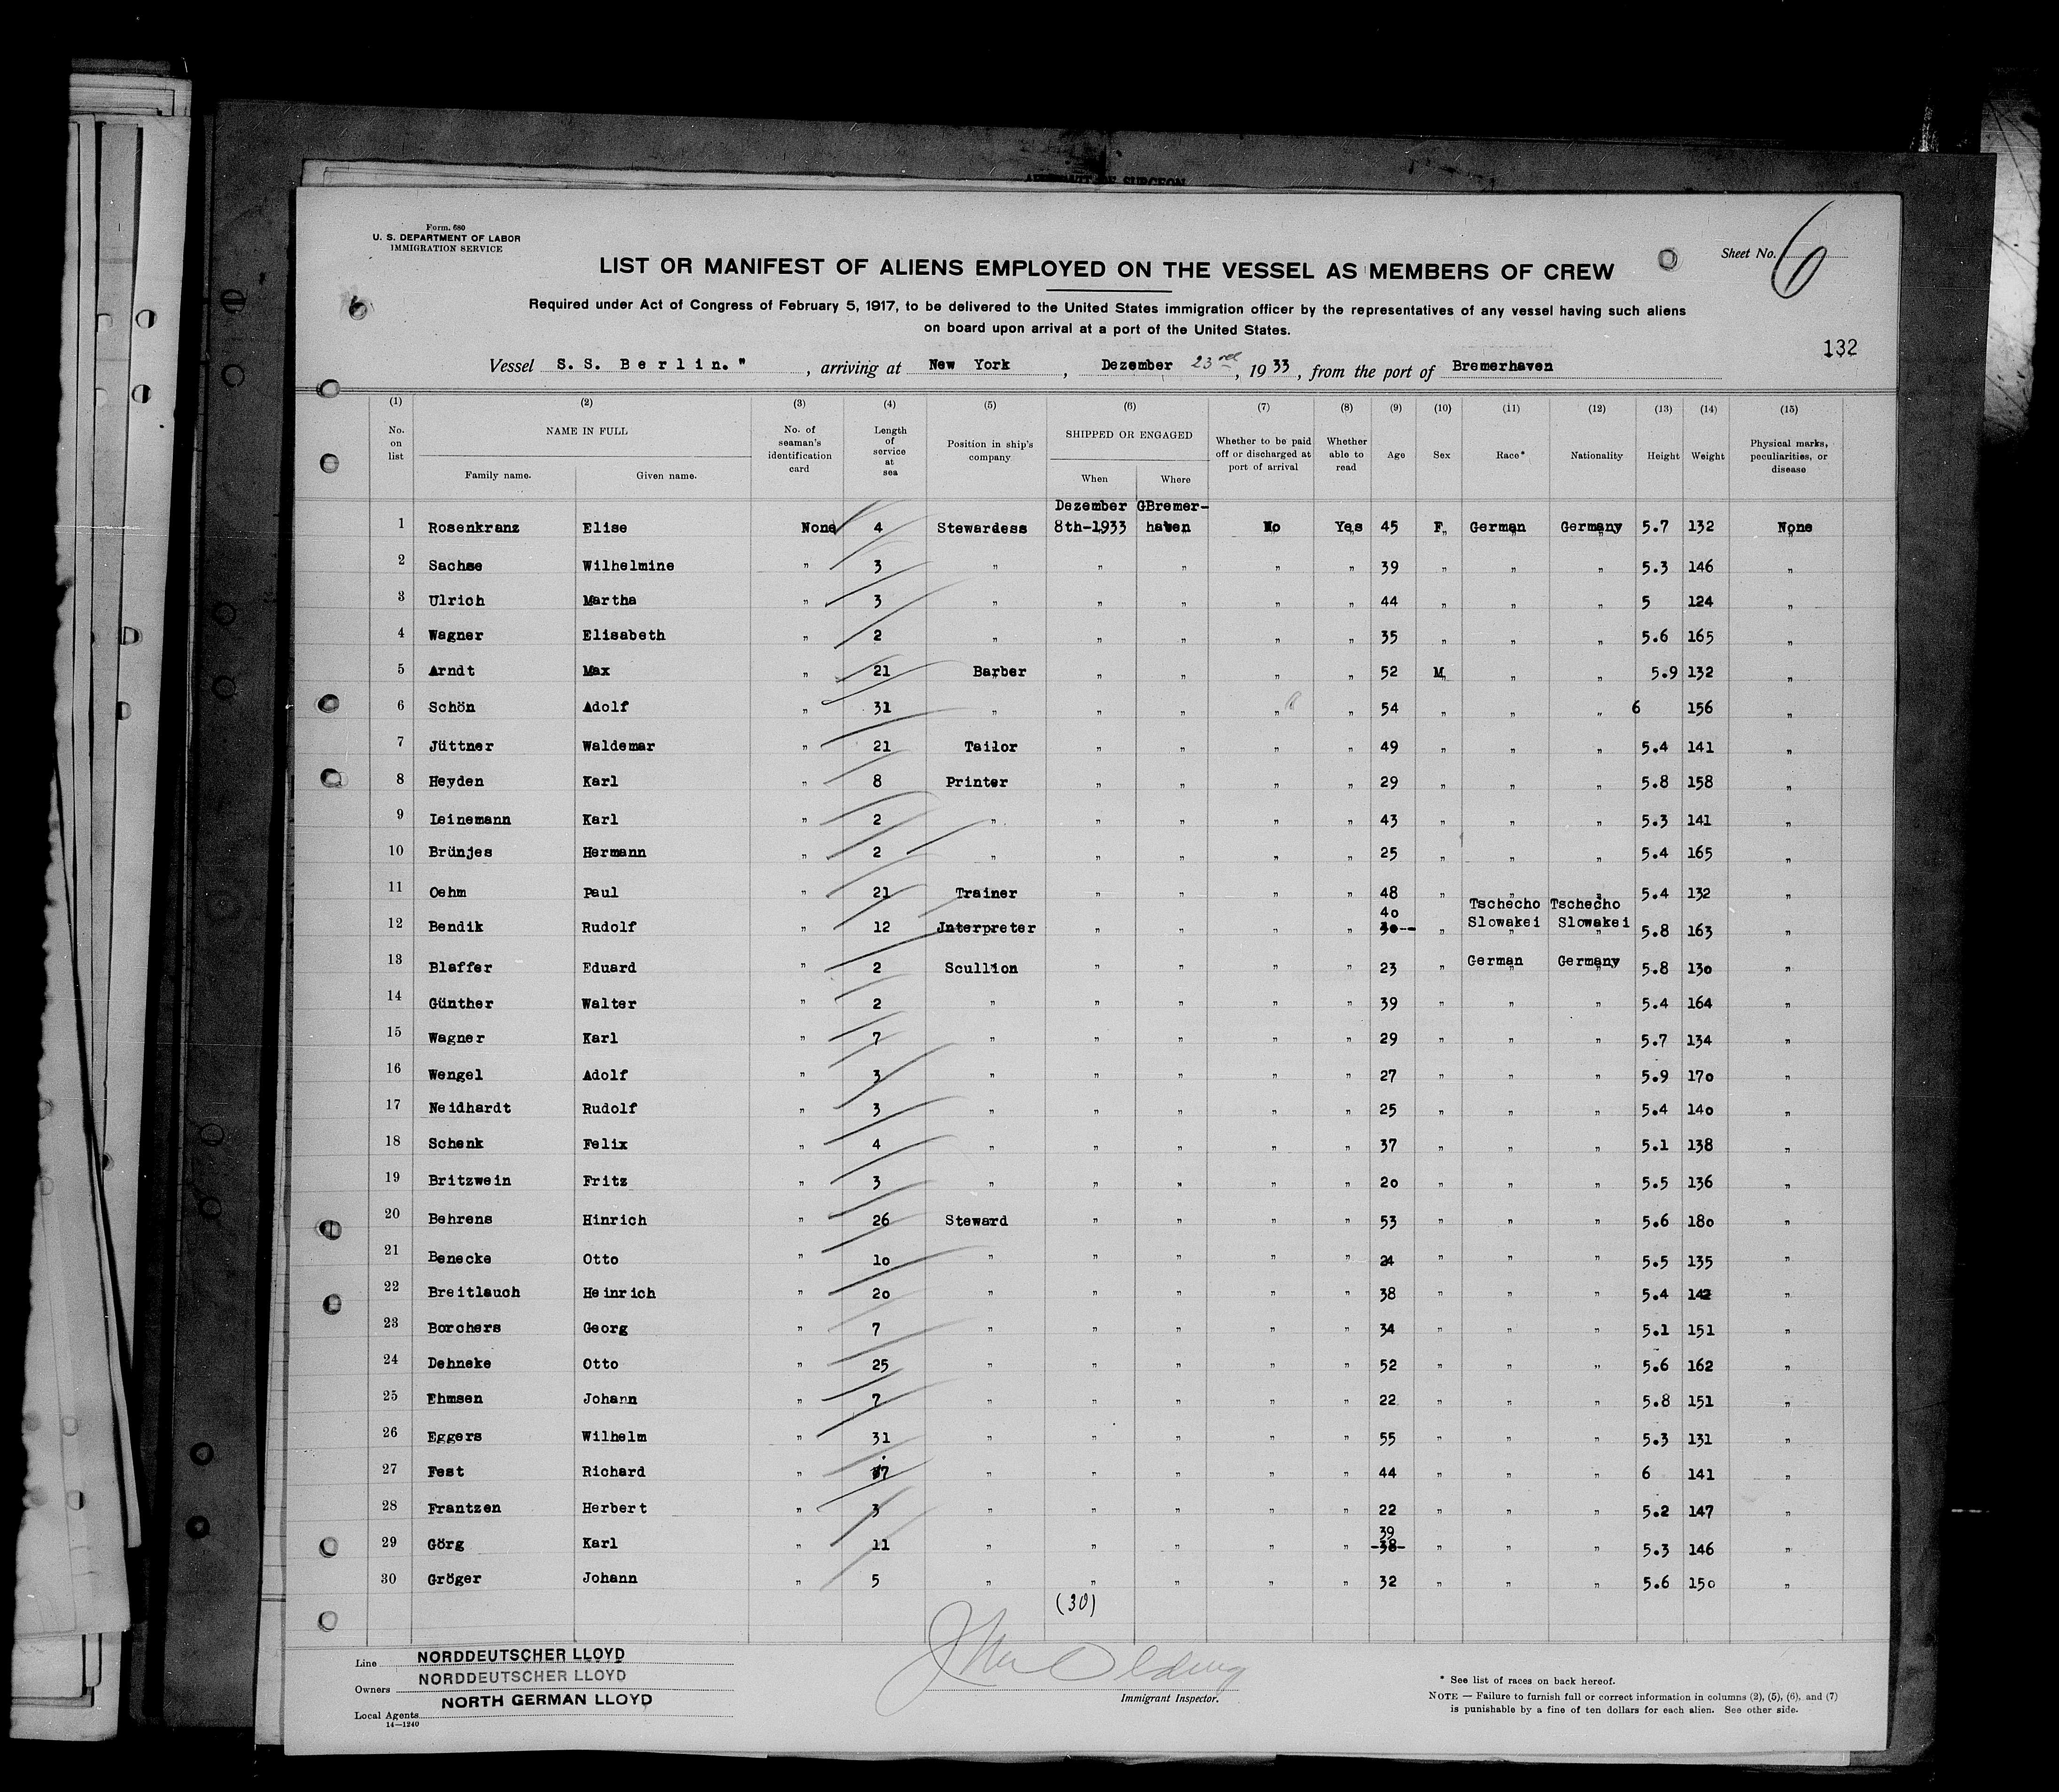 AFFIDAVIT OF SURGEON
Form. 680
U. S. DEPARTMENT OF LABOR
IMMIGRATION SERVICE
Sheet No. 6
LIST OR MANIFEST OF ALIENS EMPLOYED ON THE VESSEL AS MEMBERS OF CREW
Required under Act of Congress of February 5, 1917, to be delivered to the United States immigration officer by the representatives of any vessel having such aliens
on board upon arrival at a port of the United States.
132
Vessel S. S. B e r l i n. " , arriving at New York , Dezember 23rd , 19 33 , from the port of Bremerhaven
(1) (2) (3) (4) (5) (6) (7) (8) (9) (10) (11) (12) (13) (14) (15)
No. on list NAME IN FULL Family name. Given name. No. of seaman's identification card Length of service at sea Position in ship's company SHIPPED OR ENGAGED When Where Whether to be paid off or discharged at port of arrival Whether able to read Age Sex Race* Nationality Height Weight Physical marks, peculiarities, or disease
Dezember GBremer-
1 Rosenkranz Elise None 4 Stewardess 8th-1933 haven No Yes 45 F German Germany 5.7 132 None
2 Sachse Wilhelmine " 3 " " " " " 39 " " " 5.3 146 "
3 Ulrich Martha " 3 " " " " " 44 " " " 5 124 "
4 Wagner Elisabeth " 2 " " " " " 35 " " " 5.6 165 "
5 Arndt Max " 21 Barber " " " " 52 M " " 5.9 132 "
6 Schön Adolf " 31 " " " " " 54 " " " 6 156 "
7 Jüttner Waldemar " 21 Tailor " " " " 49 " " " 5.4 141 "
8 Heyden Karl " 8 Printer " " " " 29 " " " 5.8 158 "
9 Leinemann Karl " 2 " " " " " 43 " " " 5.3 141 "
10 Brünjes Hermann " 2 " " " " " 25 " " " 5.4 165 "
11 Oehm Paul " 21 Trainer " " " " 48 " " " 5.4 132 "
40 Tschecho Tschecho
12 Bendik Rudolf " 12 Jnterpreter " " " " 30-- " Slowakei Slowakei 5.8 163 "
13 Blaffer Eduard " 2 Scullion " " " " 23 " German Germany 5.8 130 "
14 Günther Walter " 2 " " " " " 39 " " " 5.4 164 "
15 Wagner Karl " 7 " " " " " 29 " " " 5.7 134 "
16 Wengel Adolf " 3 " " " " " 27 " " " 5.9 170 "
17 Neidhardt Rudolf " 3 " " " " " 25 " " " 5.4 140 "
18 Schenk Felix " 4 " " " " " 37 " " " 5.1 138 "
19 Britzwein Fritz " 3 " " " " " 20 " " " 5.5 136 "
20 Behrens Hinrich " 26 Steward " " " " 53 " " " 5.6 180 "
21 Benecke Otto " 10 " " " " " 24 " " " 5.5 135 "
22 Breitlauch Heinrich " 20 " " " " " 38 " " " 5.4 142 "
23 Borchers Georg " 7 " " " " " 34 " " " 5.1 151 "
24 Dehneke Otto " 25 " " " " " 52 " " " 5.6 162 "
25 Ehmsen Johann " 7 " " " " " 22 " " " 5.8 151 "
26 Eggers Wilhelm " 31 " " " " " 55 " " " 5.3 131 "
27 Fest Richard " " " " " " 44 " " " 6 141 "
28 Frantzen Herbert " 3 " " " " " 22 " " " 5.2 147 "
39
29 Görg Karl " 11 " " " " " -38- " " " 5.3 146 "
30 Gröger Johann " 5 " " " " " 32 " " " 5.6 150 "
(30)
Line NORDDEUTSCHER LLOYD
Owners NORDDEUTSCHER LLOYD
Local Agents NORTH GERMAN LLOYD
14—1240
Immigrant Inspector.
* See list of races on back hereof.
NOTE — Failure to furnish full or correct information in columns (2), (5), (6), and (7)
is punishable by a fine of ten dollars for each alien. See other side.